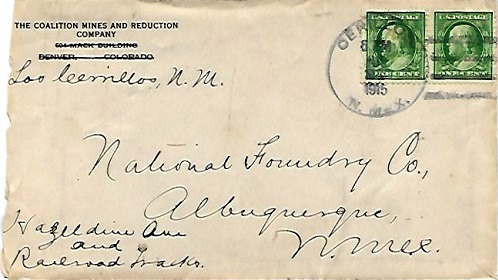 THE COALITION MINES AND REDUCTION
COMPANY
604 MACK BUILDING
DENVER, COLORADO
Los Cerrillos, N.M.
1915
N. MEX.
U.S. POSTAGE
ONE CENT
U.S. POSTAGE
ONE CENT
National Foundry Co.,
Albuquerque,
N. Mex.
Hazeldine Ave
and
Railroad Tracks.